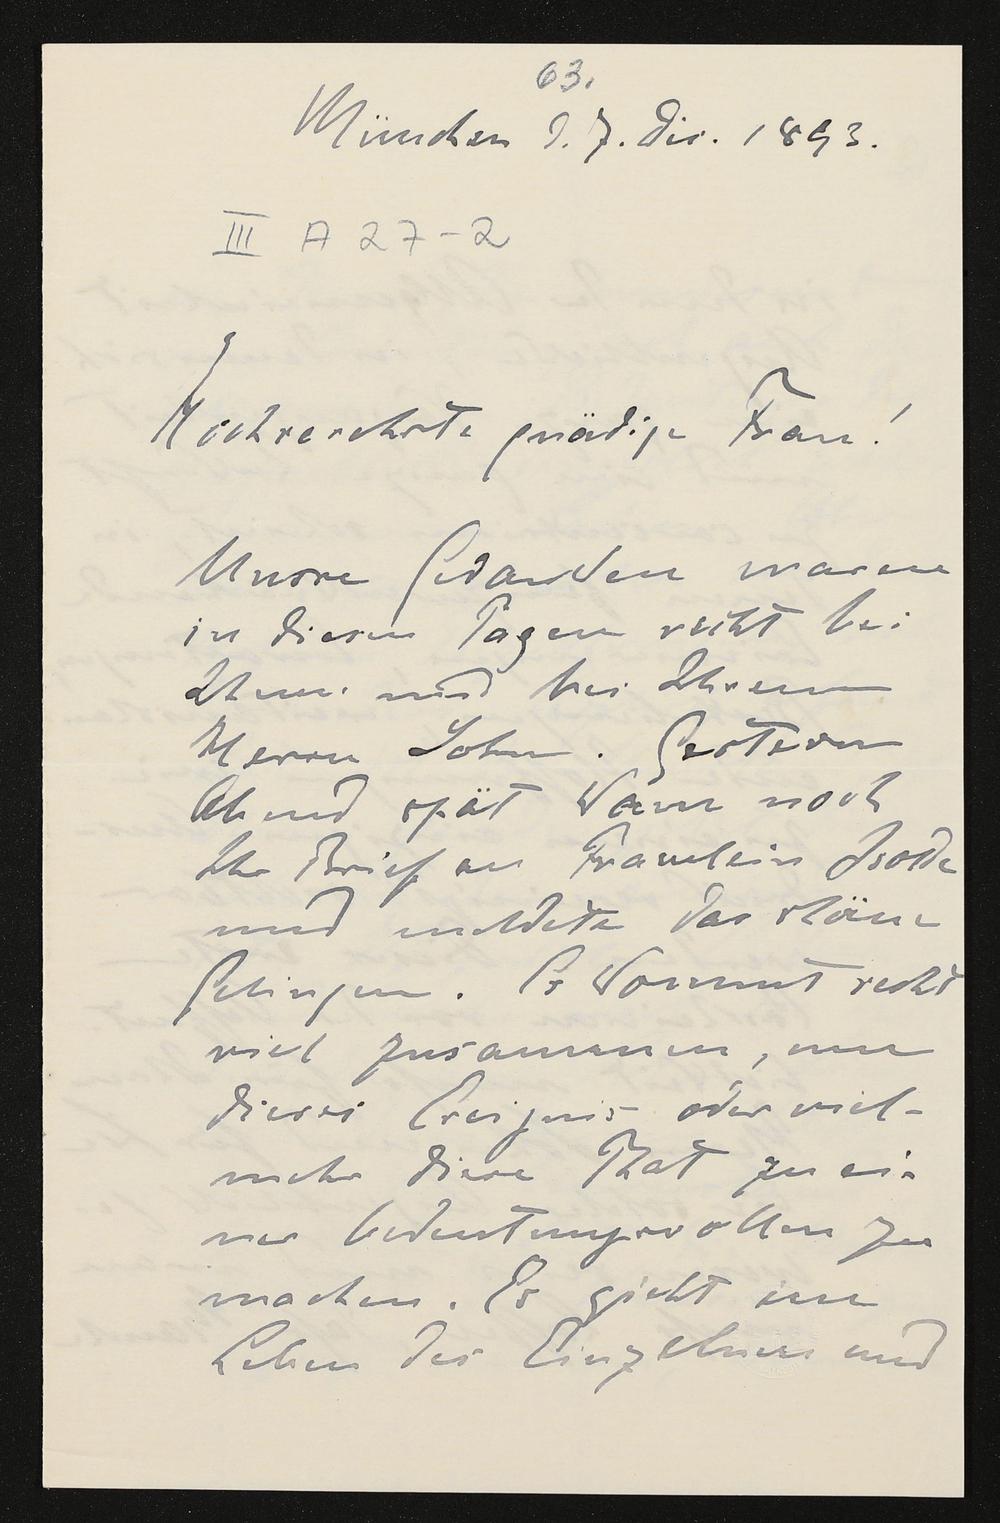 63.
München d. 7. Dis. 1893.
III A 27-2
Hochverehrte gnädige Frau!
Unsre Gedanken waren
in diesen Tagen recht bei
Ihnen und bei Ihrem
Herrn Sohn. Gestern
Abend spät kam noch
Ihr Brief an Fräulein Isolde
und meldete das schöne
Gelingen. Es kommt recht
viel zusammen, um
dieses Ereignis oder viel-
mehr diese That zu ei-
ner bedeutungsvollen zu
machen. Es giebt im
Leben des Einzelnen und